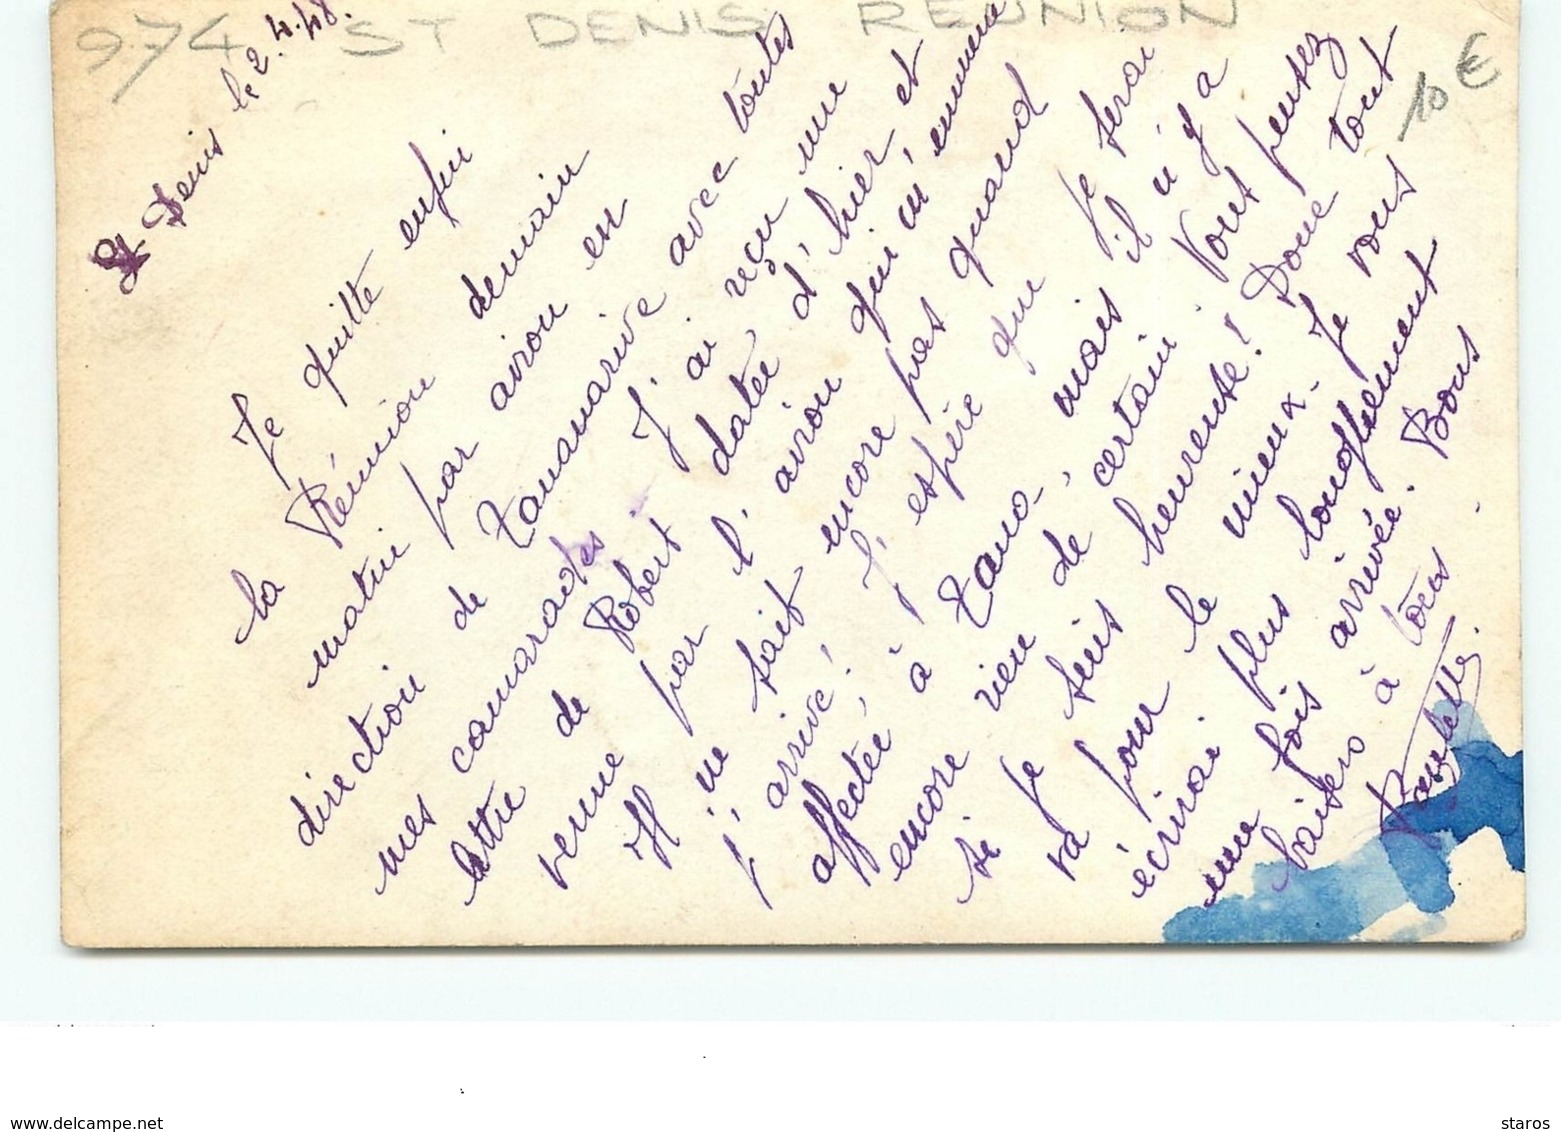 974 ST DENIS REUNION
10 €
St Denis le 2.4.48.
Je quitte enfin
la Réunion demain
matin par avion en
direction de Tananarive avec toutes
mes camarades. J'ai reçu une
lettre de Robert datée d'hier et
venue par l'avion qui m'emmena
off ne sait encore pas quand
j'arrive! J'espère que je serai
affectée à Tana, mais il n'y a
encore rien de certain. Vous pensez
si je suis heureuse! Donc tout
va pour le mieux. Je vous
écrirai plus longuement
une fois arrivée. Bons
baisers à tous.
www.delcampe.net
staros